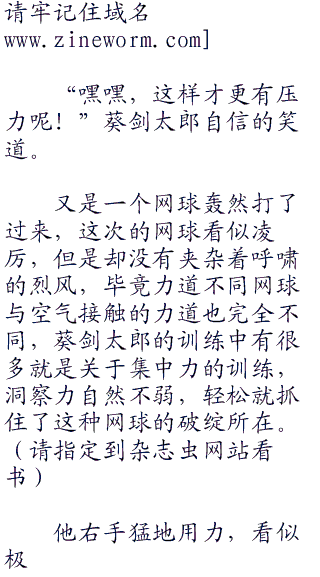 请牢记住域名
www.zineworm.com]
“嘿嘿，这样才更有压
力呢！”葵剑太郎自信的笑
道。
又是一个网球轰然打了
过来，这次的网球看似凌
厉，但是却没有夹杂着呼啸
的烈风，毕竟力道不同网球
与空气接触的力道也完全不
同，葵剑太郎的训练中有很
多就是关于集中力的训练，
洞察力自然不弱，轻松就抓
住了这种网球的破绽所在。
（请指定到杂志虫网站看
书）
他右手猛地用力，看似
极